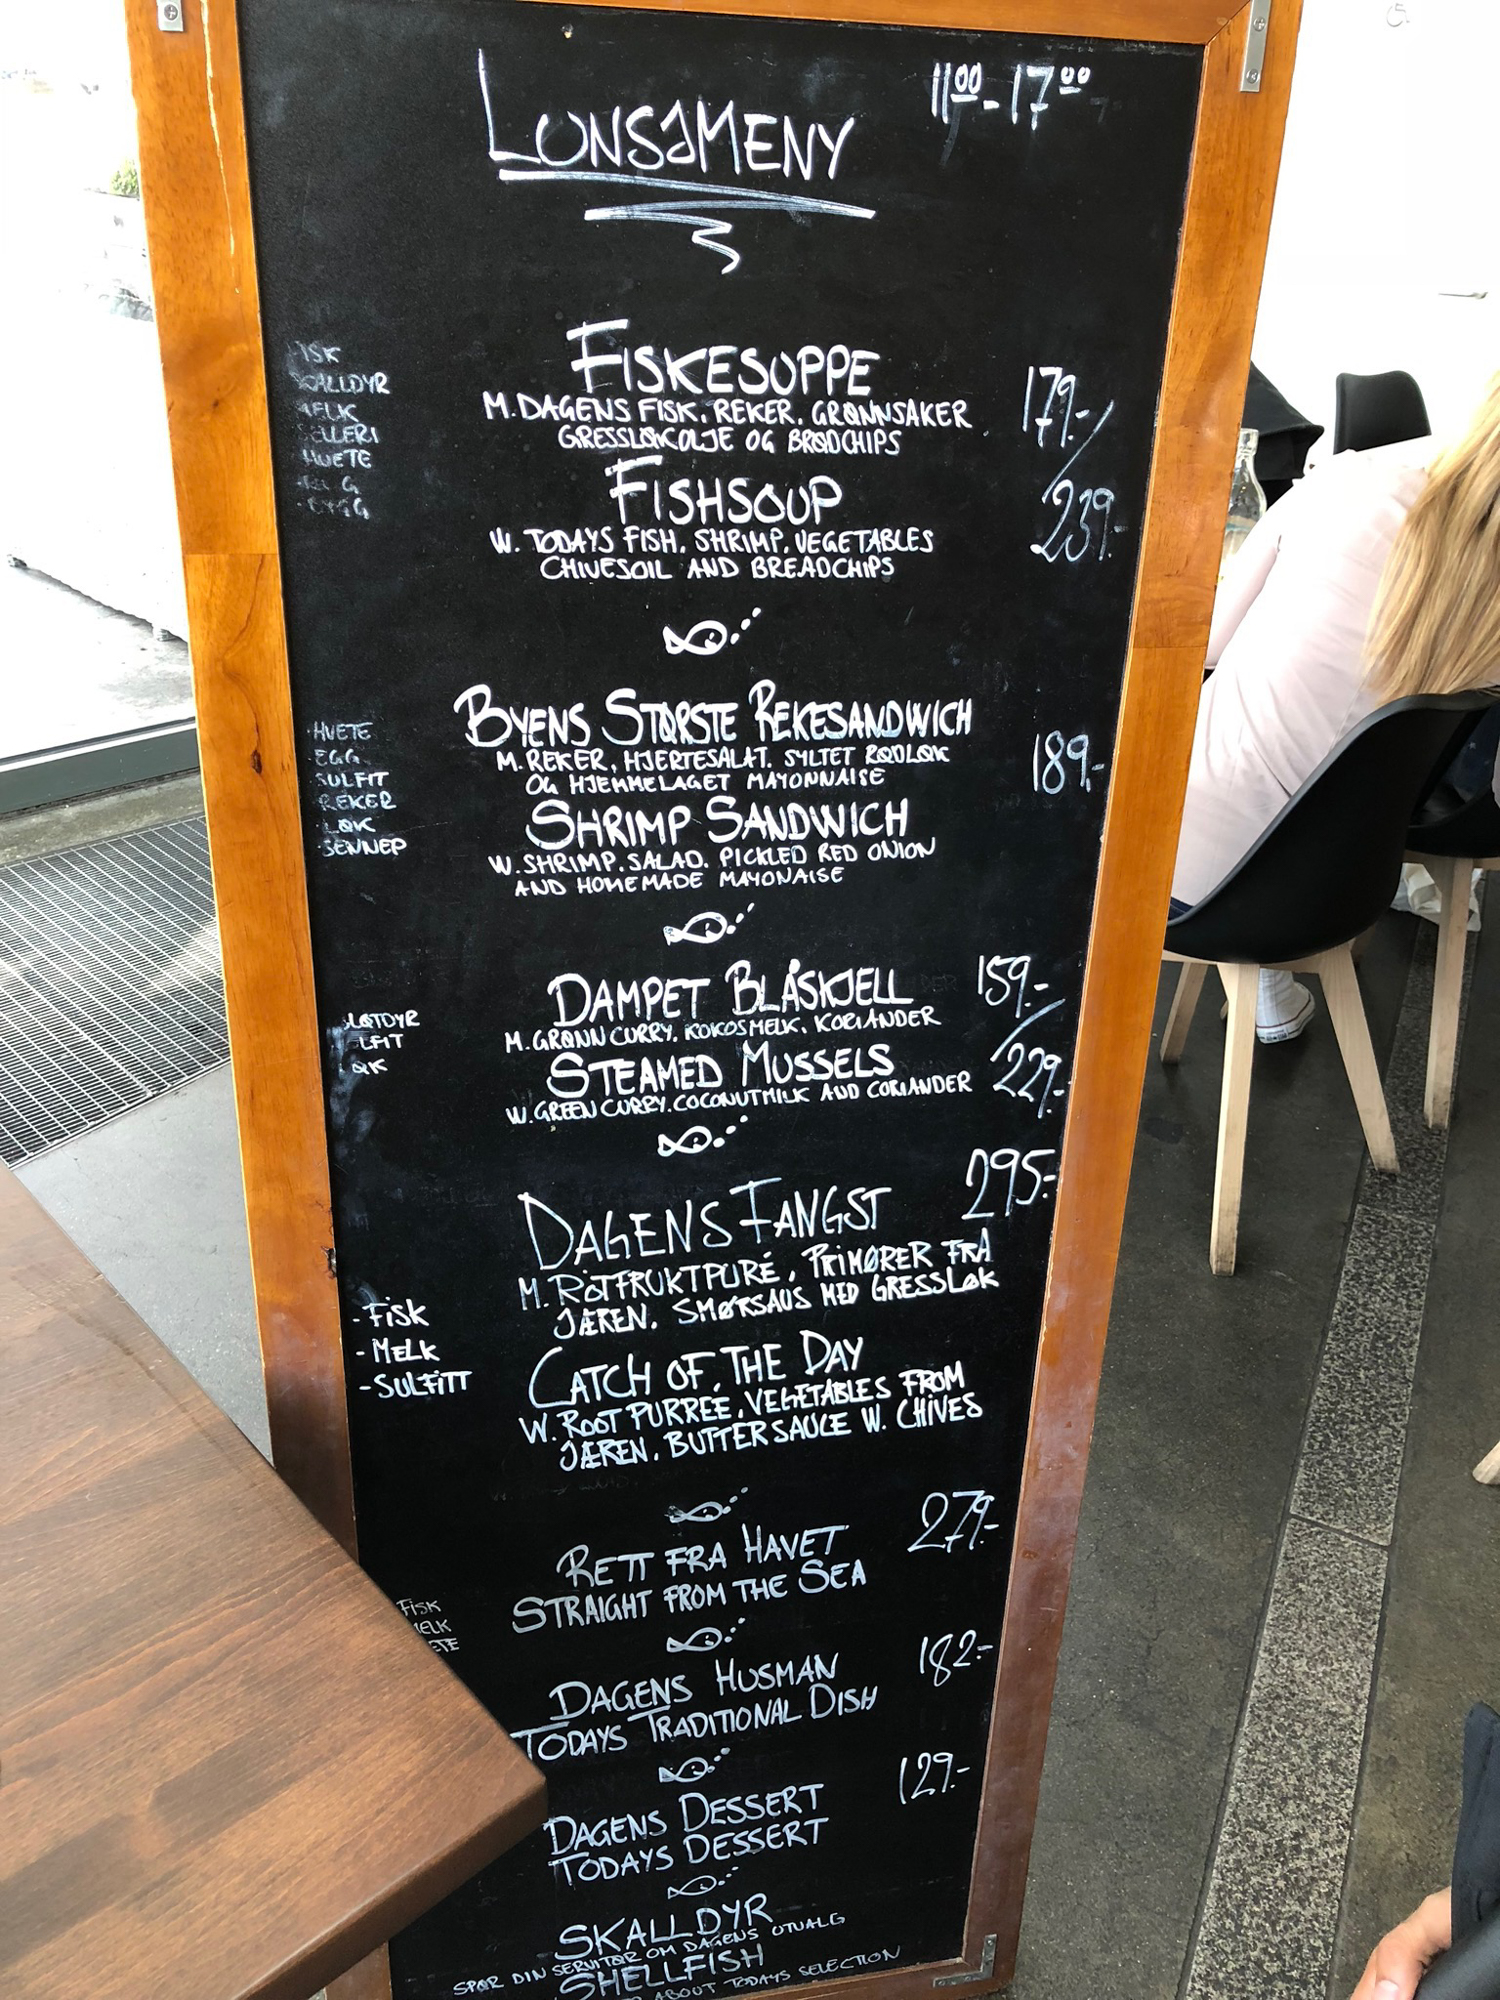 LUNSJMENY
11⁰⁰-17⁰⁰
FISKESUPPE
M. DAGENS FISK. REKER. GRØNNSAKER
GRESSLØKOLJE OG BRØDCHIPS
179,-/
FISHSOUP
W. TODAYS FISH. SHRIMP. VEGETABLES
CHIVESOIL AND BREADCHIPS
239,-
HVETE
BYENS STØRSTE REKESANDWICH
M. REKER, HJERTESALAT. SYLTET RØDLØK
OG HJEMMELAGET MAYONNAISE
189,-
SHRIMP SANDWICH
W. SHRIMP. SALAD. PICKLED RED ONION
AND HOMEMADE MAYONAISE
HVETE
EGG
SULFIT
REKER
LØK
SENNEP
DAMPET BLÅSKJELL
M. GRØNN CURRY. KOKOSMELK. KORIANDER
159,-/
STEAMED MUSSELS
W. GREEN CURRY. COCONUTMILK AND CORIANDER
229,-
DAGENS FANGST
295,-
M. ROTFRUKTPURÉ, PRIMØRER FRA
JÆREN. SMØRSAUS MED GRESSLØK
CATCH OF THE DAY
W. ROOT PURREE, VEGETABLES FROM
JÆREN. BUTTER SAUCE W. CHIVES
- FISK
- MELK
- SULFITT
RETT FRA HAVET
STRAIGHT FROM THE SEA
279,-
FISK
DAGENS HUSMAN
TODAYS TRADITIONAL DISH
182,-
DAGENS DESSERT
TODAYS DESSERT
129,-
SKALLDYR
SPØR DIN SERVITØR OM DAGENS UTVALG
SHELLFISH
ABOUT TODAYS SELECTION